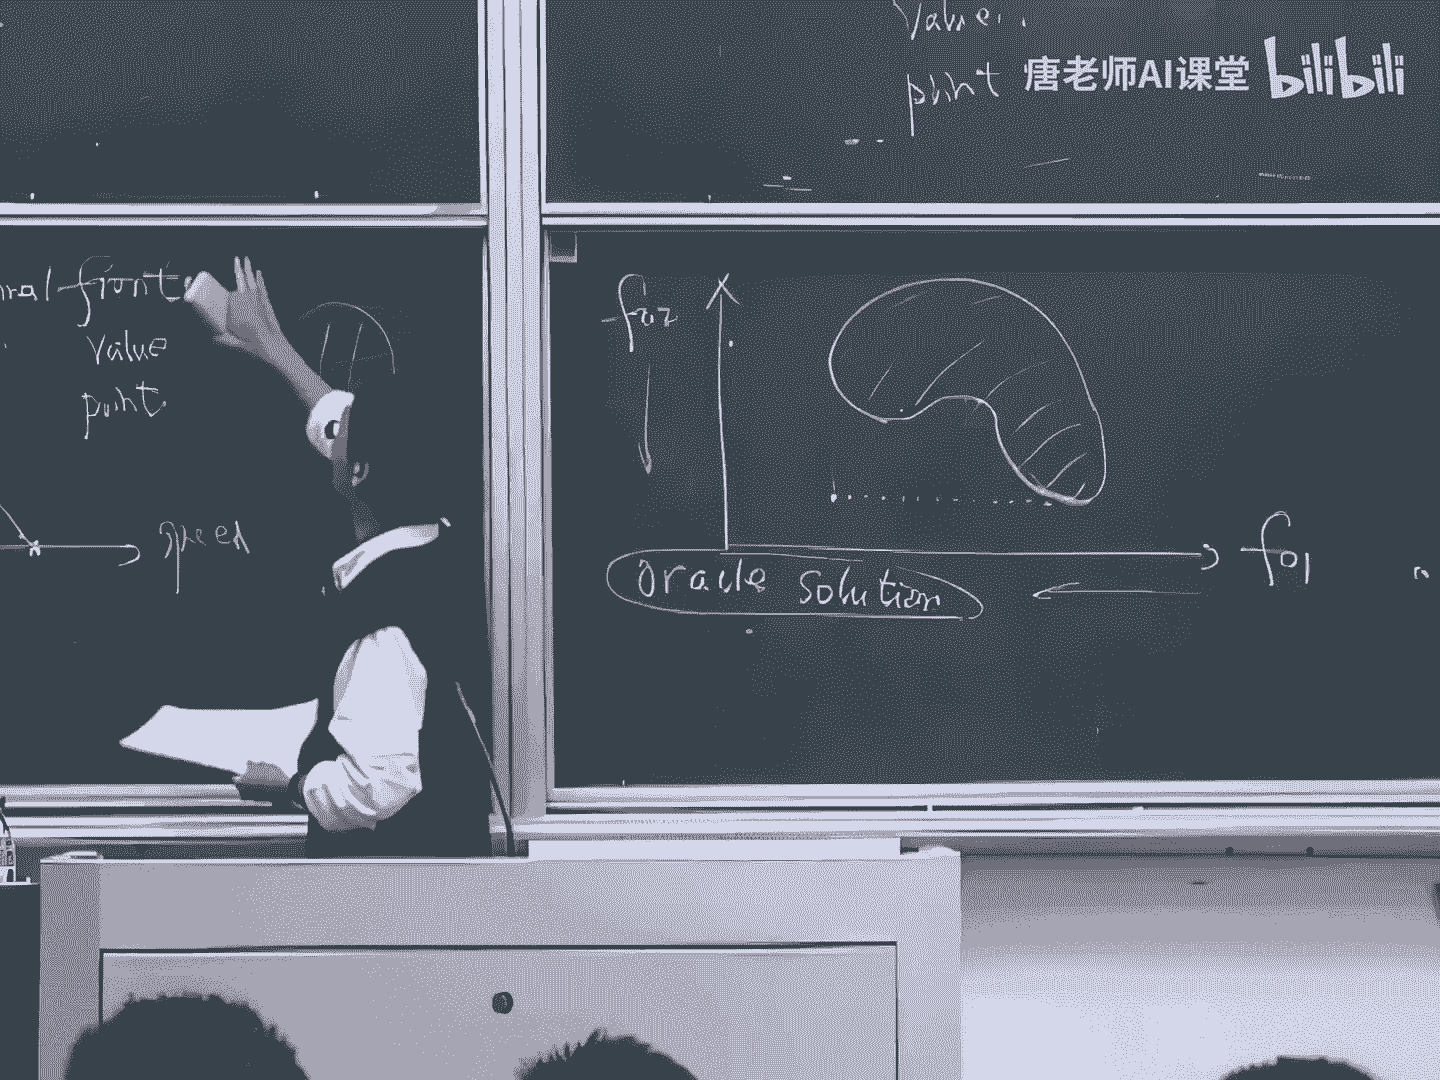 Value.
point
唐老师AI课堂 bilibili
front
Value
point
speed
f02
f01
oracle solution